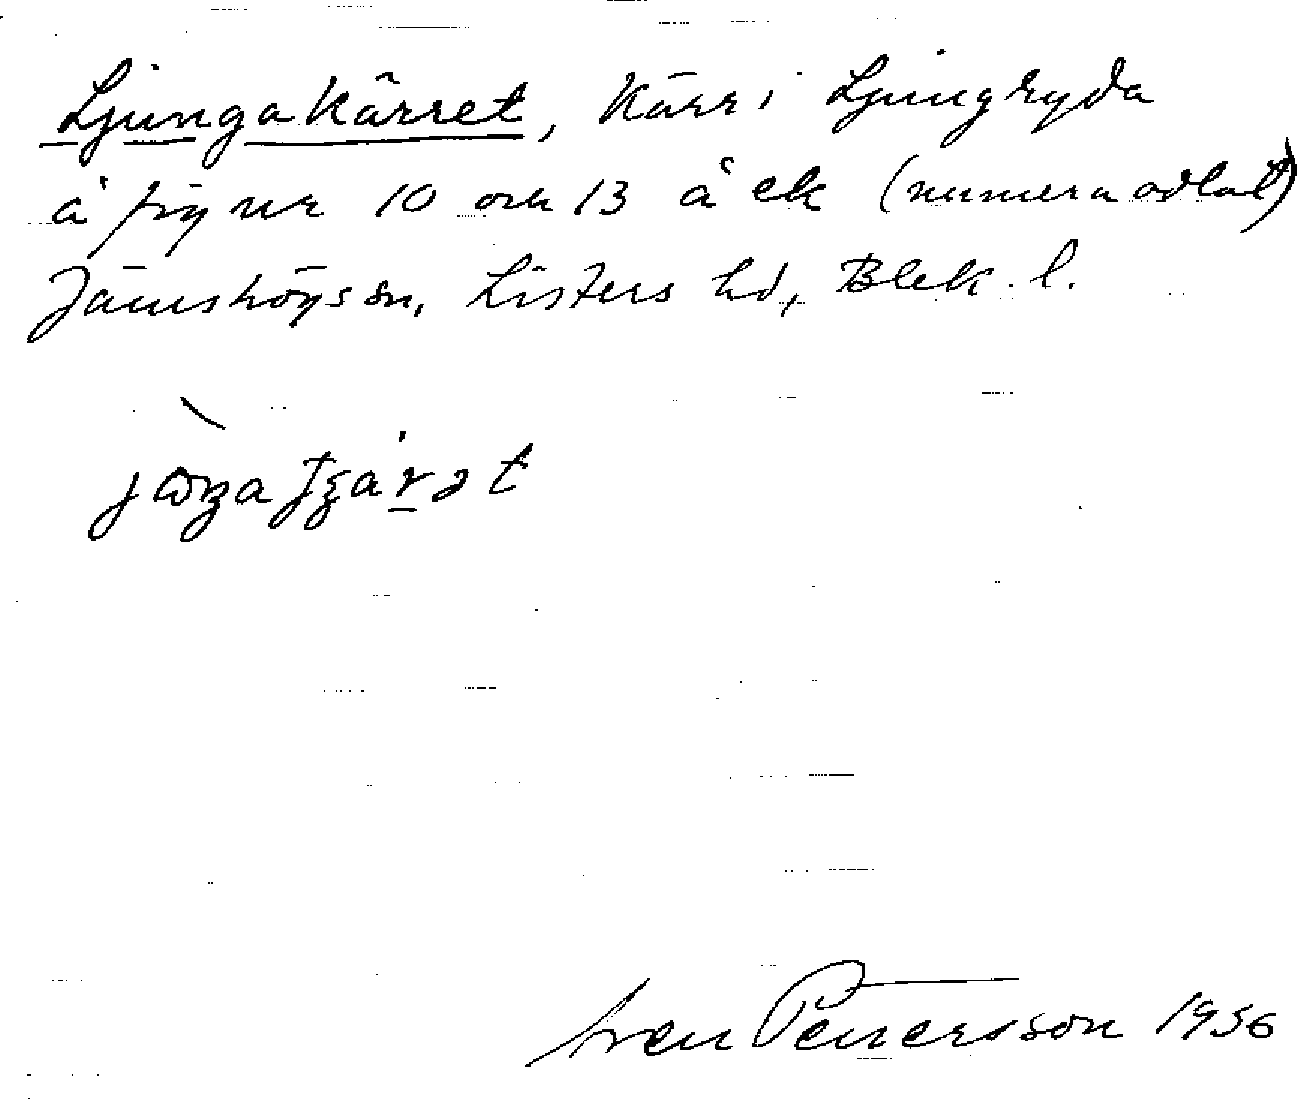 Ljungakärret, Kärr i Ljungryda
å figur 10 och 13 å ek (numera odlat)
Jämshögs sn, Listers hd, Blek. l.
Sven Pettersson 1956